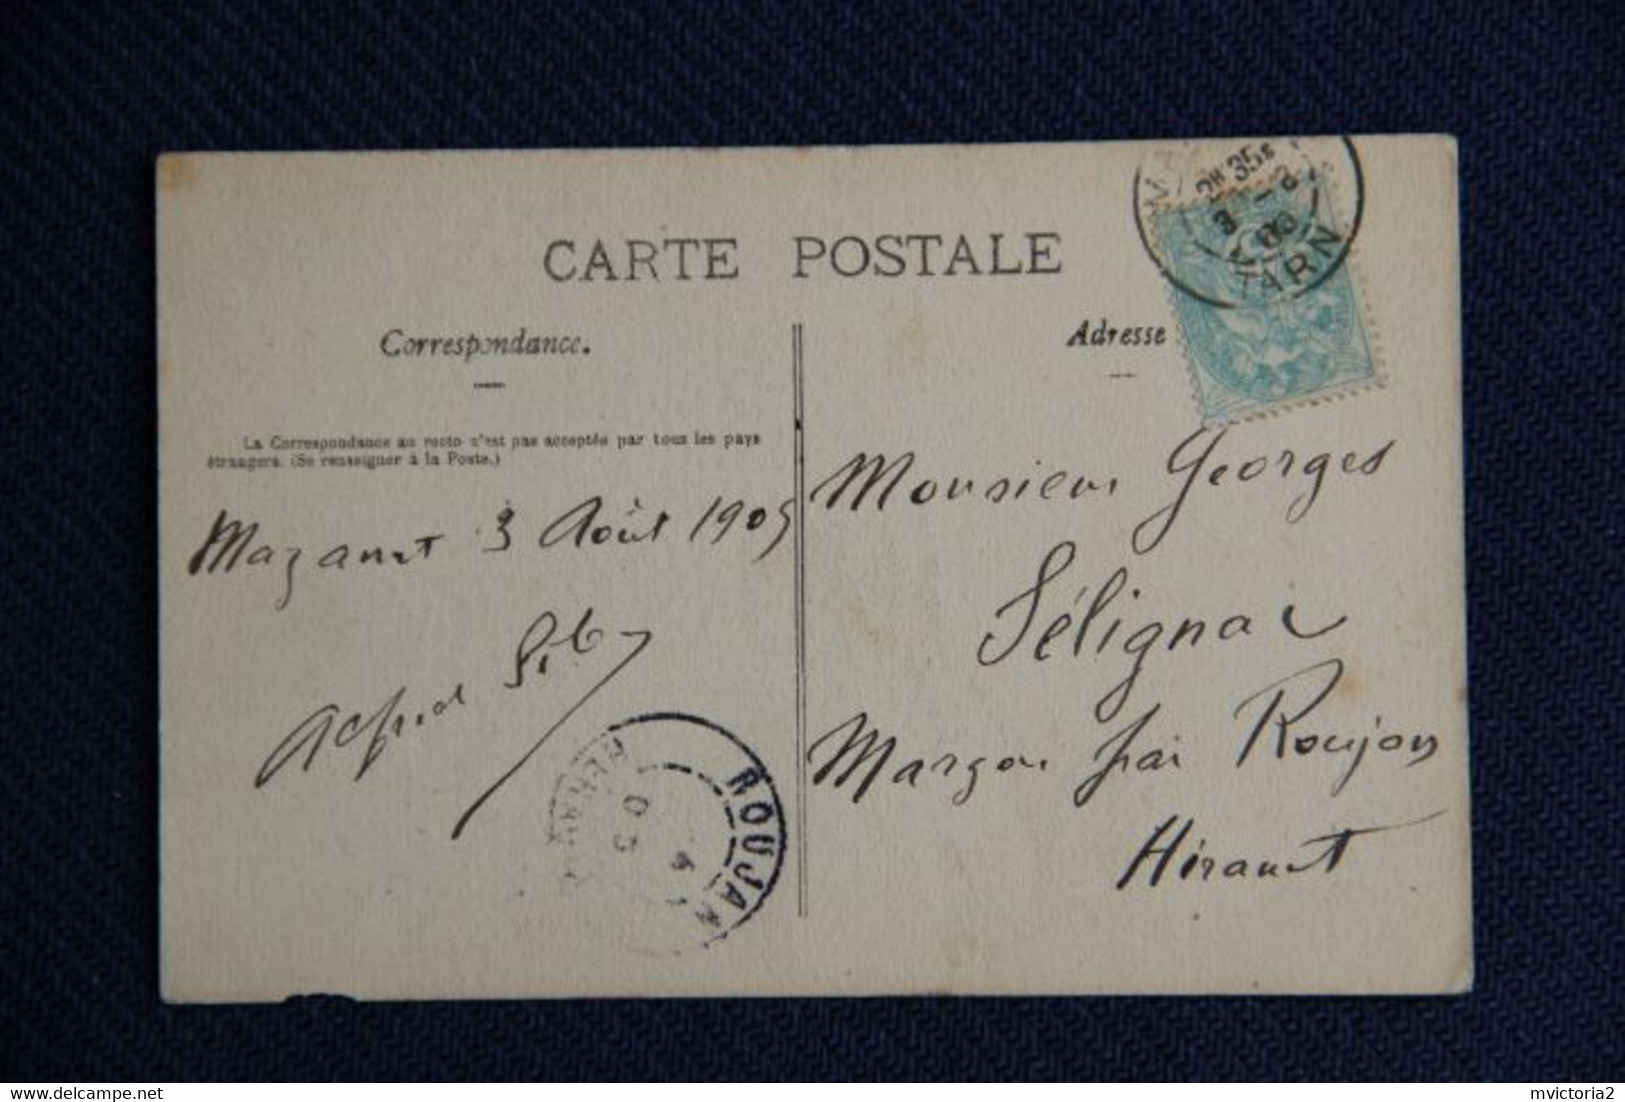 CARTE POSTALE
Correspondance.
La Correspondance au recto n'est pas acceptée par tous les pays
étrangers. (Se renseigner à la Poste.)
Mazamet 3 Août 1905
Alfred
Adresse
TARN
Monsieur Georges
Sélignac
Margon par Roujan
Hérault
ROUJAN
HÉRAULT
05
mvictoria2